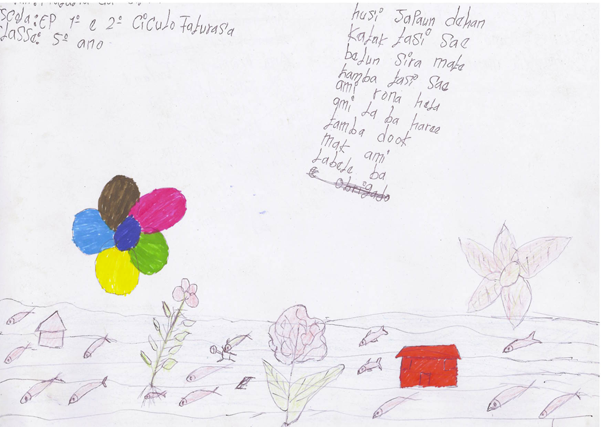 scola: EP 1º e 2º Ciculo Faturasa
lasse: 5º ano
husi Japaun dehan
Katak tasi sae
belun sira mate
tamba tasi sae
ami rona hela
ami la ba haree
tamba dook
mak ami
labele ba
Obrigado